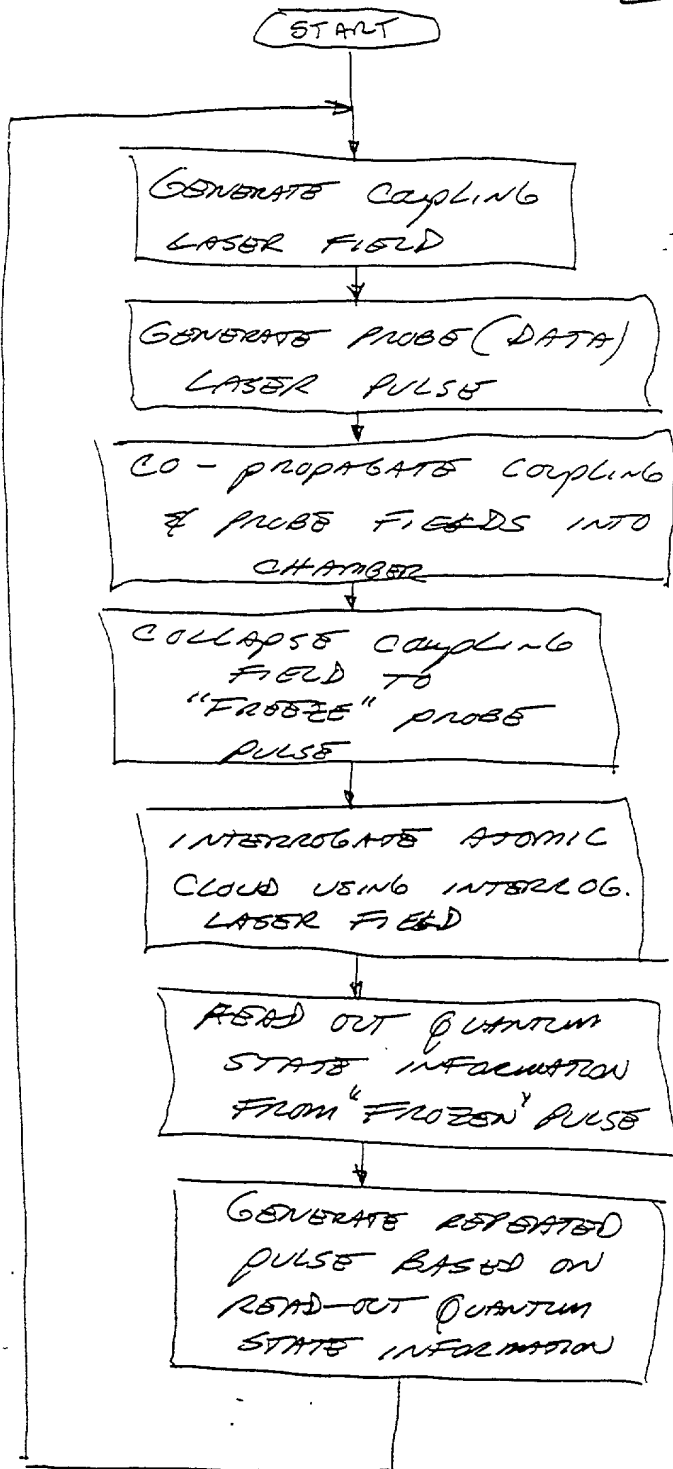 START
GENERATE COUPLING
LASER FIELD
GENERATE PROBE (DATA)
LASER PULSE
CO-PROPAGATE COUPLING
& PROBE FIELDS INTO
CHAMBER
COLLAPSE COUPLING
FIELD TO
"FREEZE" PROBE
PULSE
INTERROGATE ATOMIC
CLOUD USING INTERROG.
LASER FIELD
READ OUT QUANTUM
STATE INFORMATION
FROM "FROZEN" PULSE
GENERATE REPEATED
PULSE BASED ON
READ-OUT QUANTUM
STATE INFORMATION